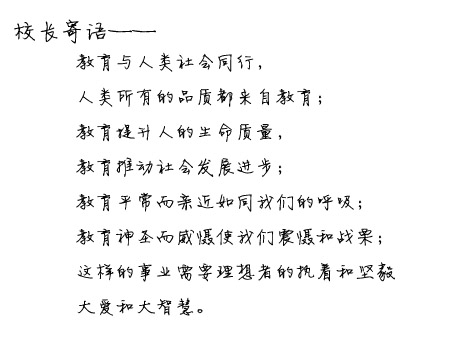 校长寄语——
教育与人类社会同行，
人类所有的品质都来自教育；
教育提升人的生命质量，
教育推动社会发展进步；
教育平常而亲近如同我们的呼吸；
教育神圣而威慑使我们震慑和战栗；
这样的事业需要理想者的执着和坚毅
大爱和大智慧。